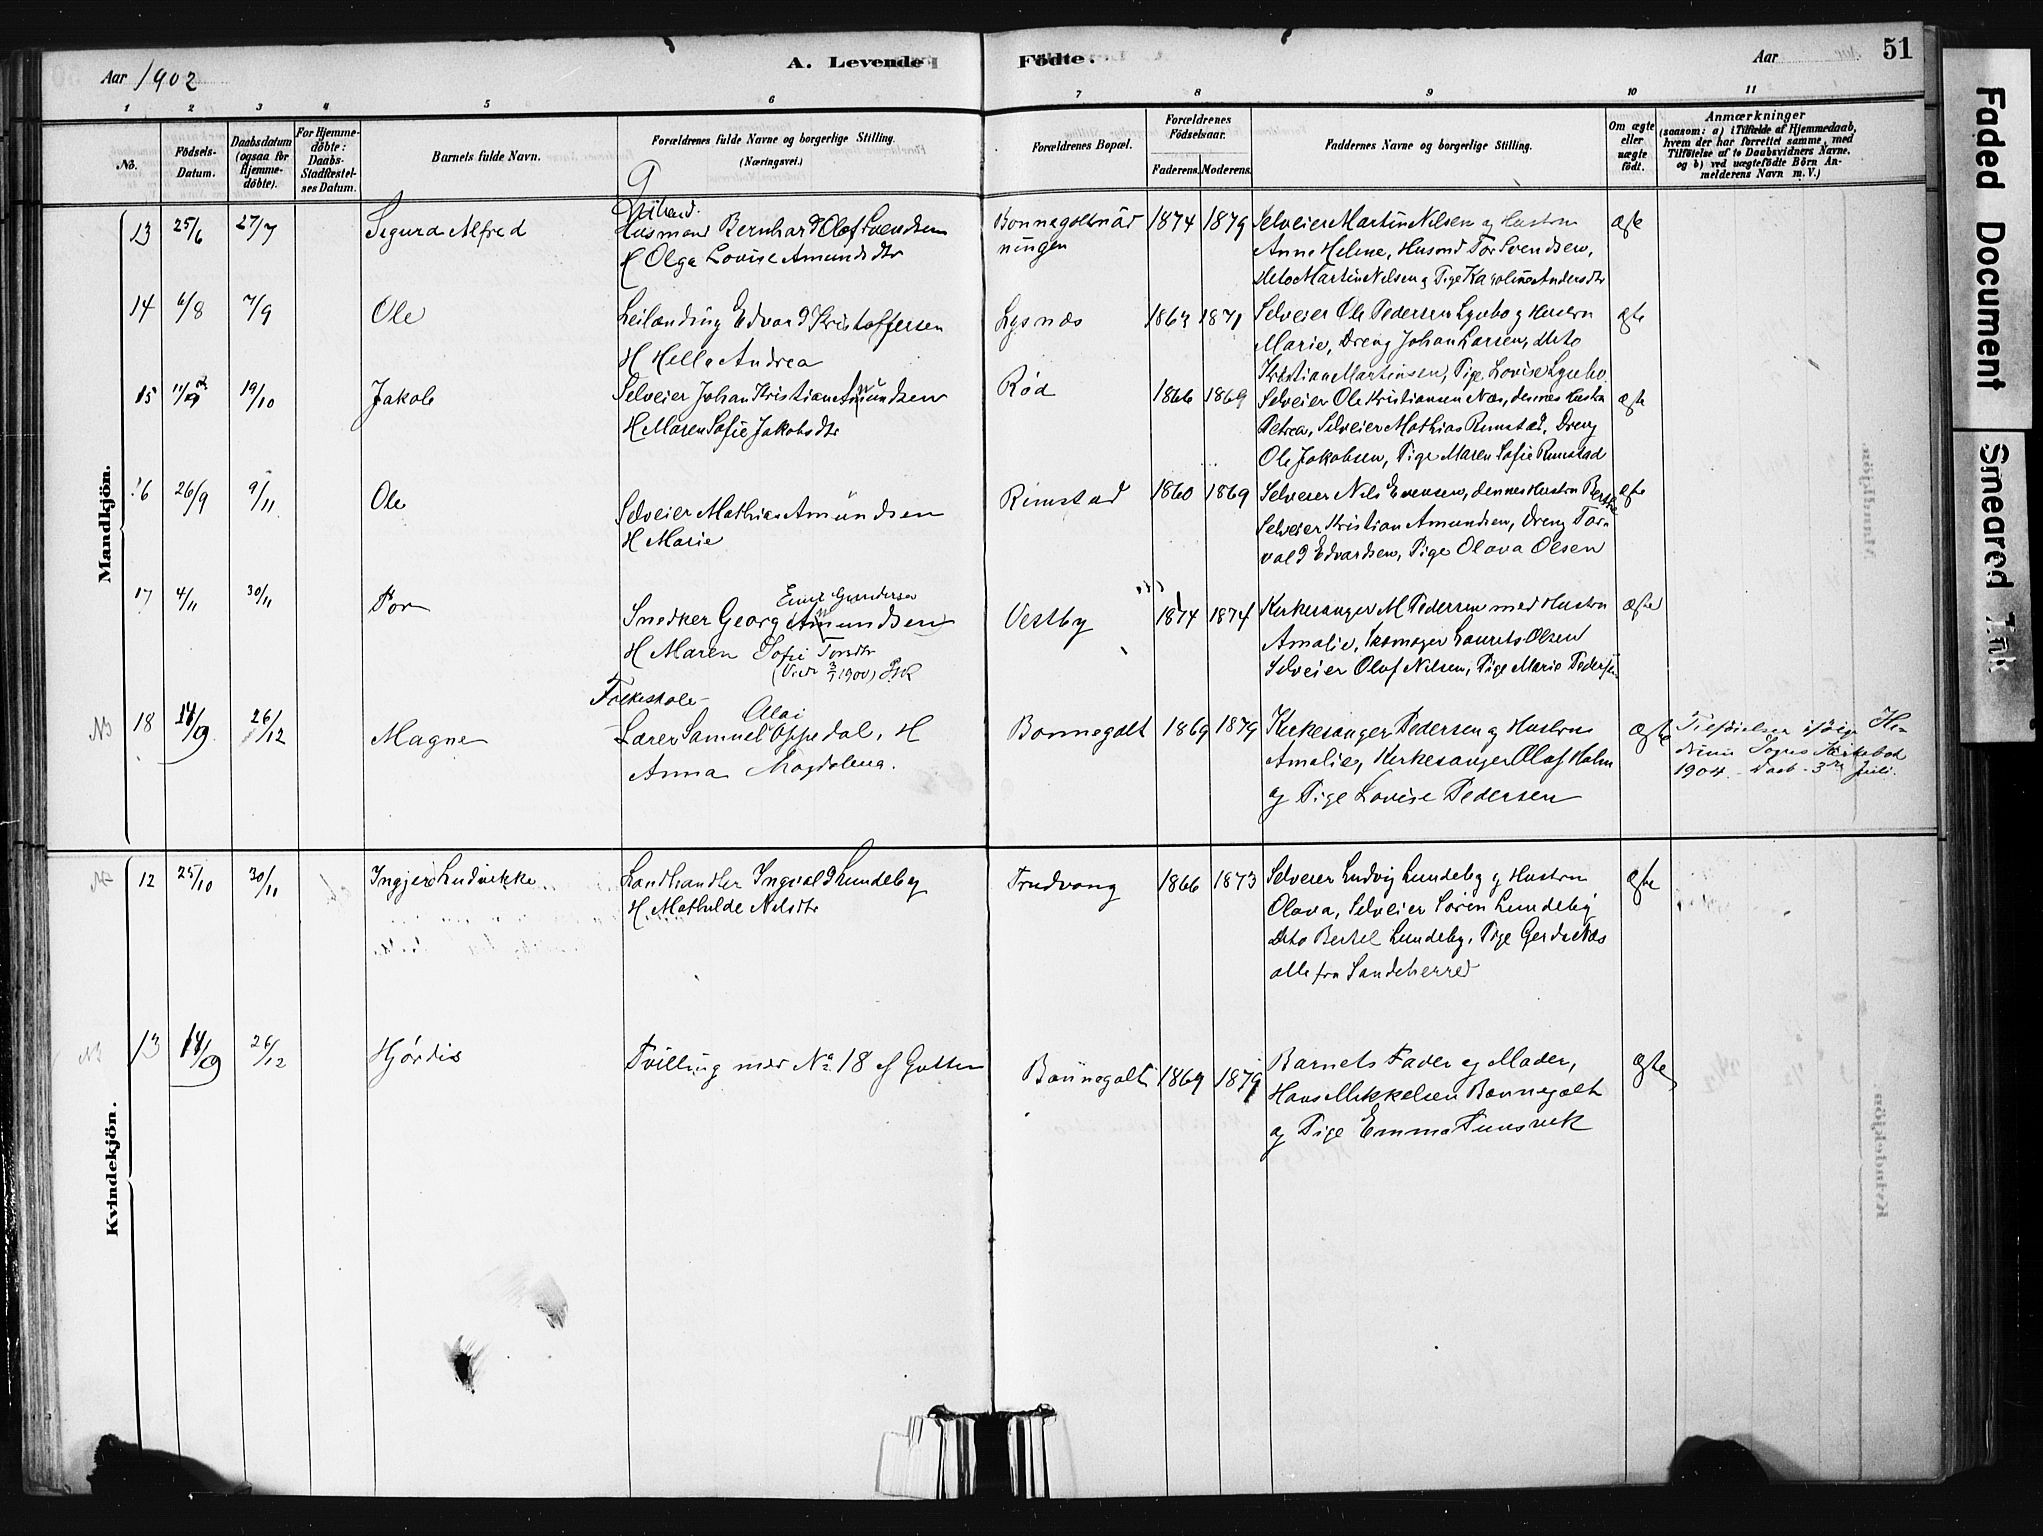 51
Aar 1902
A. Levende
Födte.
Aar
1 2 3 4 5 6 7 8 9 10 11
No.
Födsels-Datum.
Daabsdatum (ogsaa for Hjemme-döbte).
For Hjemme-döbte: Daabs-Stadfæstel-ses Datum.
Barnets fulde Navn.
Forældrenes fulde Navne og borgerlige Stilling. (Næringsvei.)
Forældrenes Bopæl.
Forældrenes Födselsaar.
Faderens. Moderens.
Faddernes Navne og borgerlige Stilling.
Om ægte eller uægte födt.
Anmærkninger
(saasom: a) i Tilfælde af Hjemmedaab, hvem der har forrettet samme, med Tilföielse af to Daabsvidners Navne, og b) ved uægtefödte Börn An-melderens Navn m. V.)
Mandkjön.
13 25/6 27/7 Sigurd Alfred
Husmand Bernhard Olaf Svendsen
H Olga Lovise Amundsdtr
1874 1879
Selveier Martin Nilsen og Hustru
Anne Helene, Husmd Tor Svendsen,
dito Martin Nilsen & Pige Karoline Andersdtr
ægte
14 6/8 7/9 Ole
Leilænding Edvard Kristoffersen
H Hella Andrea
Lysnæs
1871
Selveier Ole Pedersen Lyebo og Hustru
Marie, Dreng Johan Larsen, dito
Kristian Martinsen, Pige Lovise Lyebo
ægte
15 19/10 Jakob
Selveier Johan Kristian Amundsen
H Maren Sofie Jakobsdtr
Röd
1866 1869
Selveier Ole Kristiansen Næs, dennes Hustru
Petrea, Selveier Mathias Rimstad, Dreng
Ole Jakobsen, Pige Maren Sofie Rimstad
ægte
16 26/9 9/11 Ole
Selveier Mathias Amundsen
H Marie
Rimstad
1860 1869
Selveier Nils Evensen, dennes Hustru
Selveier Kristian Amundsen, Dreng Tor-
vald Edvardsen, Pige Olava Olsen
ægte
17 4/11 30/11 Tor
Emil Gundersen
Snedker Georg Amundsen
H Maren Sofie Torsdtr
Vestby
1874 1874
Kirkesanger M Pedersen med Hustru
Amalie, Skomager Laurits Olsen
Selveier Olaf Nilsen, Pige Marie Pedersen
ægte
NB 18 26/12 Magne
Folkeskole-
Lærer Samuel Olai Oppedal, H
Anna Magdalena.
Bonnegolt
1869 1879
Kirkesanger Pedersen og Hustru
Amalie, Kirkesanger Olaf Holm
og Pige Lovise Pedersen
ægte
Tilföielser ifölge Hi-
drum Sogns Kirkebok
1904. Daab 3die Juli.
Kvindekjön.
12 25/10 30/11 Ingjerd Ludvikke
Landhandler Ingvald Lundeby
H Mathilde Nilsdtr
Trudvang
1866 1873
Selveier Ludvig Lundeby og Hustru
Olava, Selveier Sören Lundeby
dito Bertel Lundeby, Pige Gerda Næs
alle fra Sandeherred
ægte
NB 13 26/12 Hjördis
Tvilling med No 18 af Gutter
Bonnegolt
1869 1879
Barnets Fader og Moder,
Hans Mikkelsen Bonnegolt
og Pige Emma Tunsvik
ægte
Faded Document
Smeared Ink